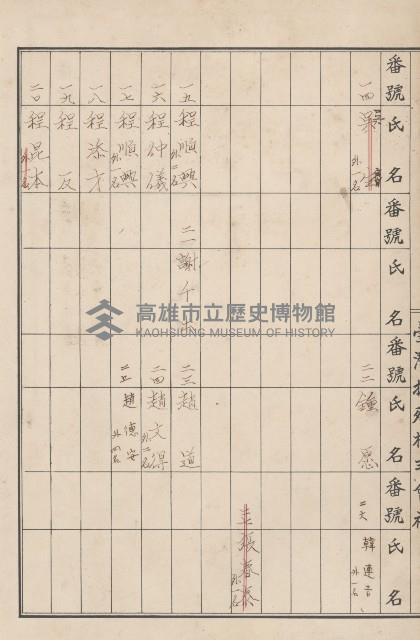 番號 氏名
一四
外一名
一五 程順興 外二名
一六 程仲儀
一七 程順興 外一名
一八 程添才
一九 程 反
二〇 程昆 外一名
番號 氏名
二一 謝
番號 氏名
二二 鍾 愿
二三 趙 道
二四 趙文得 外二名
二五 趙德安 外四名
番號 氏名
二六 韓連 外一名
張春 外一名
高雄市立歷史博物館
KAOHSIUNG MUSEUM OF HISTORY